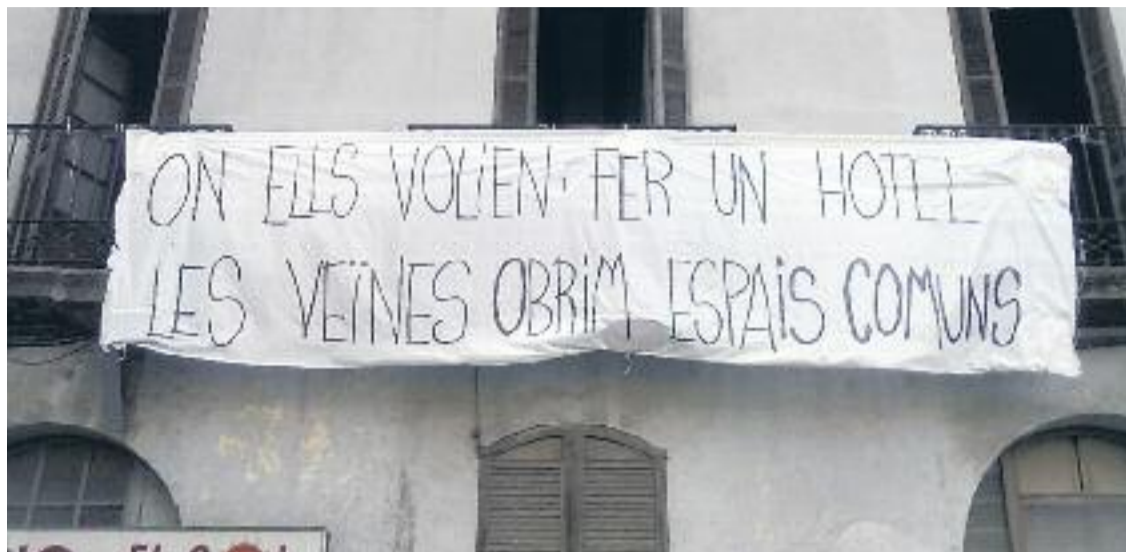 ON ELLS VOLIEN FER UN HOTEL
LES VEÏNES OBRIM ESPAIS COMUNS